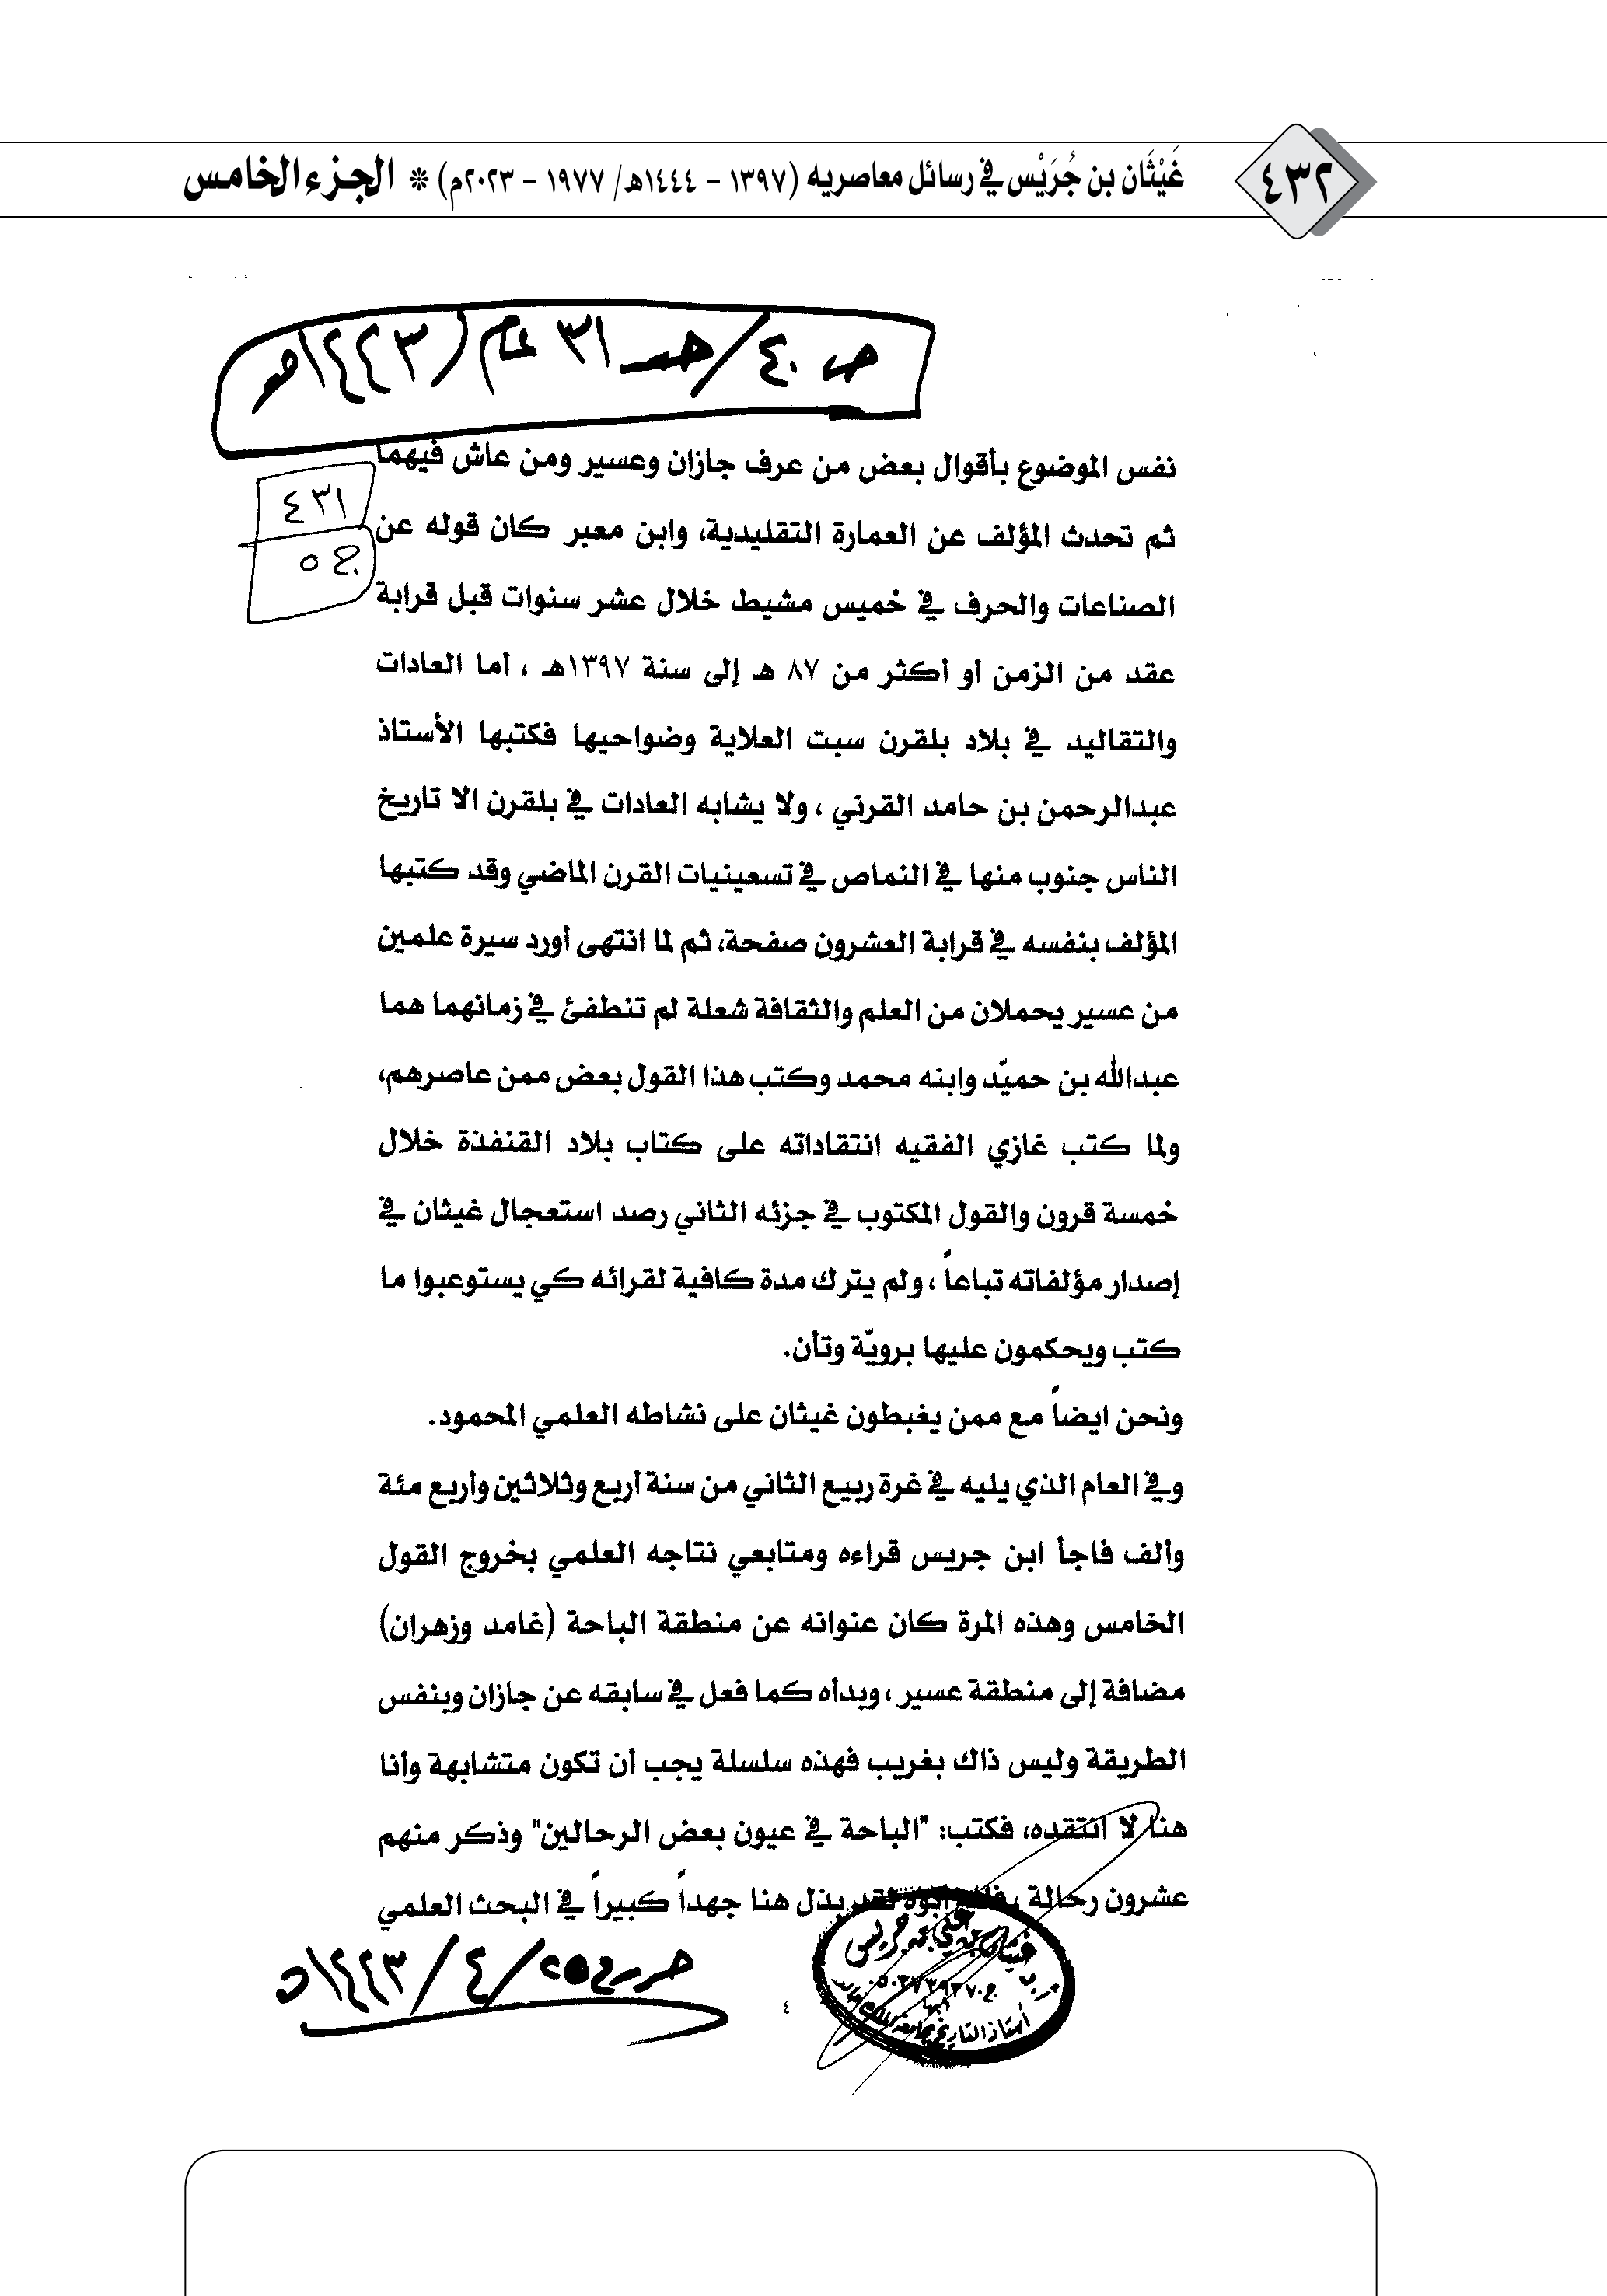 ٤٣٢
غَيْثَان بن جُرَيْس في رسائل معاصريه (١٣٩٧ - ١٤٤٤هـ/ ١٩٧٧ - ٢٠٢٣م) * الجزء الخامس
ص ٤٠/ حـ ٣١ لعام (١٤٤٣هـ
٤٣١
ج ٥
نفس الموضوع بأقوال بعض من عرف جازان وعسير ومن عاش فيهما
ثم تحدث المؤلف عن العمارة التقليدية، وابن معبر كان قوله عن
الصناعات والحرف في خميس مشيط خلال عشر سنوات قبل قرابة
عقد من الزمن أو أكثر من ٨٧ هـ إلى سنة ١٣٩٧هـ ، أما العادات
والتقاليد في بلاد بلقرن سبت العلاية وضواحيها فكتبها الأستاذ
عبدالرحمن بن حامد القرني ، ولا يشابه العادات في بلقرن الا تاريخ
الناس جنوب منها في النماص في تسعينيات القرن الماضي وقد كتبها
المؤلف بنفسه في قرابة العشرون صفحة، ثم لما انتهى أورد سيرة علمين
من عسير يحملان من العلم والثقافة شعلة لم تنطفئ في زمانهما هما
عبدالله بن حميّد وابنه محمد وكتب هذا القول بعض ممن عاصرهم،
ولما كتب غازي الفقيه انتقاداته على كتاب بلاد القنفذة خلال
خمسة قرون والقول المكتوب في جزئه الثاني رصد استعجال غيثان في
إصدار مؤلفاته تباعاً ، ولم يترك مدة كافية لقرائه كي يستوعبوا ما
كتب ويحكمون عليها برويّة وتأن.
ونحن ايضاً مع ممن يغبطون غيثان على نشاطه العلمي المحمود.
وفي العام الذي يليه في غرة ربيع الثاني من سنة أربع وثلاثين وأربع مئة
وألف فاجأ ابن جريس قراءه ومتابعي نتاجه العلمي بخروج القول
الخامس وهذه المرة كان عنوانه عن منطقة الباحة (غامد وزهران)
مضافة إلى منطقة عسير ، وبدأه كما فعل في سابقه عن جازان وبنفس
الطريقة وليس ذاك بغريب فهذه سلسلة يجب أن تكون متشابهة وأنا
هنا لا انتقده، فكتب: "الباحة في عيون بعض الرحالين" وذكر منهم
عشرون رحالة ، فلله أبوه لقد بذل هنا جهداً كبيراً في البحث العلمي
غيثان بن علي بن جريس
ج ٠٥٠٣٧٣٩٣٧٠
أبها
أستاذ التاريخ بجامعة الملك خالد
٤
حرر في ٢٥/ ٤/ ١٤٤٣هـ